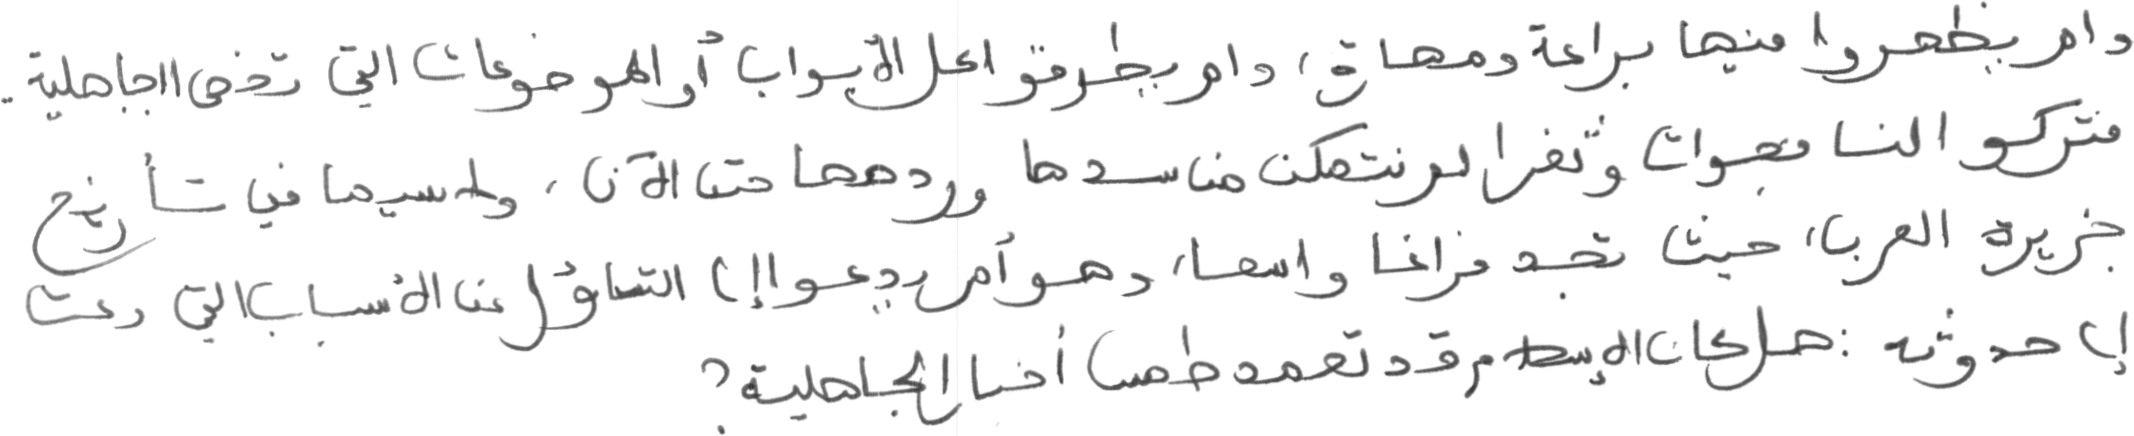 ولم يظهروا فيها براعة ومهارة، ولم يطرقوا كل الأبواب أو الموضوعات التي تخص الجاهلية.
فتركوا لنا فجوات وثغرا لم نتمكن من سدها وردمها حتى الآن، ولا سيما في تأريخ
جزيرة العرب، حيث تجد فراغا واسعا، وهو أمر يدعوا إلى التساؤل عن الأسباب التي دعت
إلى حدوثه: هل كان الإسلام قد تعمد طمس أخبار الجاهلية؟